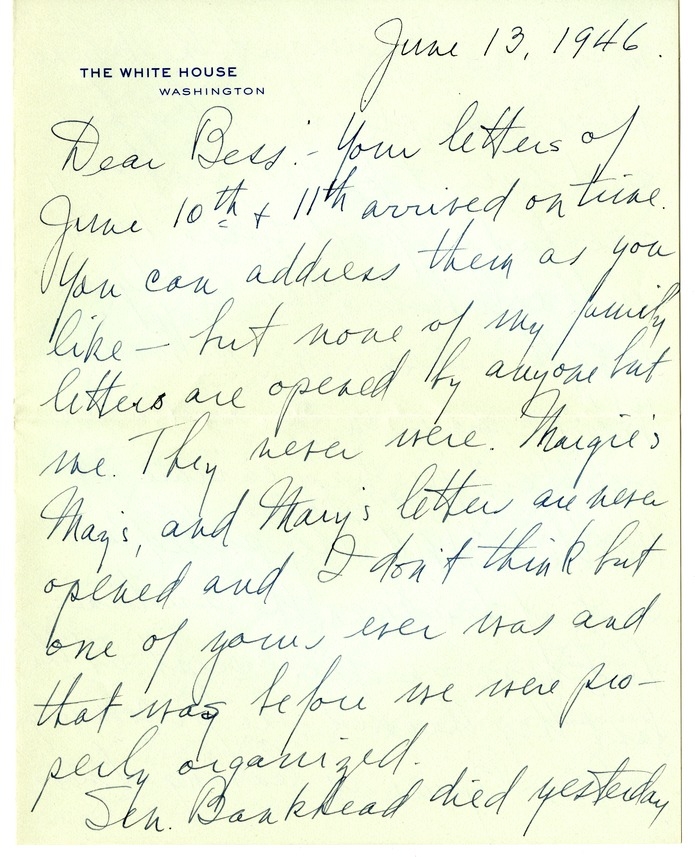 June 13, 1946.
THE WHITE HOUSE
WASHINGTON
Dear Bess:- Your letters of
June 10th & 11th arrived on time.
You can address them as you
like — but none of my family
letters are opened by anyone but
me. They never were. Margie's
May's, and Mary's letters are never
opened and I don't think but
one of yours ever was and
that was before we were pro-
perly organized.
Sen. Bankhead died yesterday